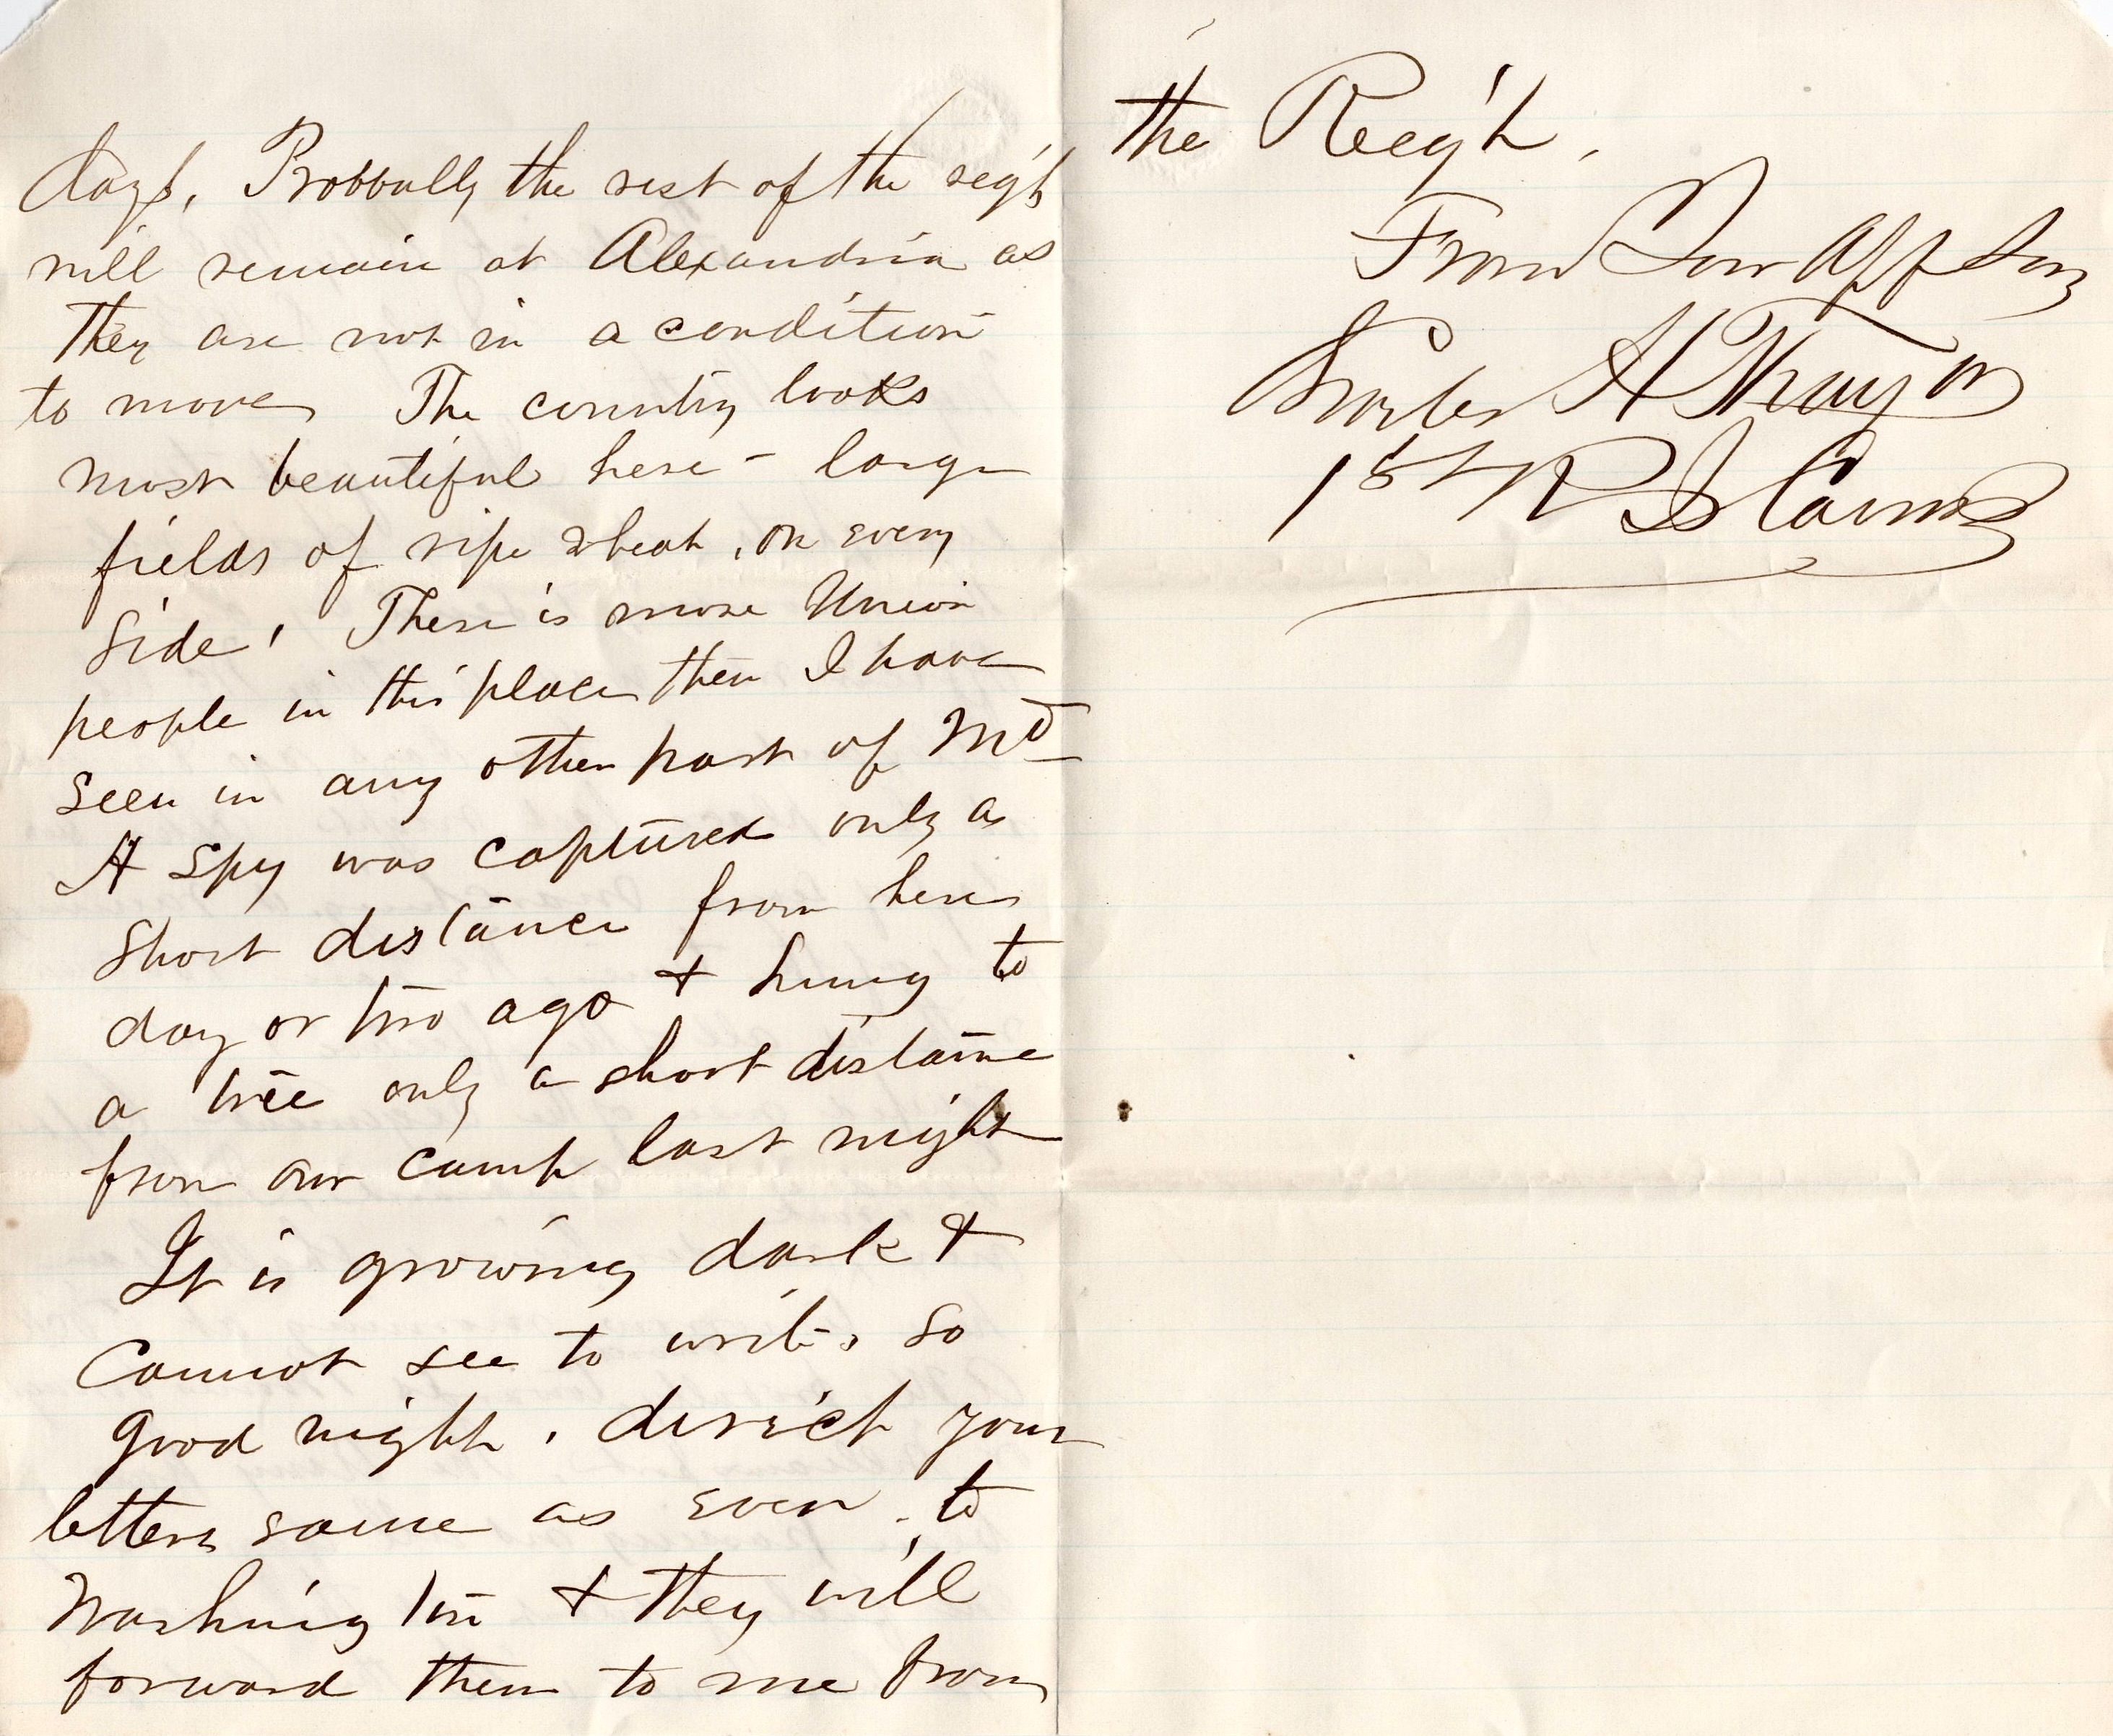 days. Probbally the rest of the regt
will remain at Alexandria as
they are not in a condition
to move, The country looks
most beautiful here - large
fields of ripe wheat, on every
side! There is more Union
people in this place then I have
seen in any other part of Md
A spy was captured only a
short distance from here
day or two ago + hung to
a tree only a short distance
from our camp last night
It is growing dark +
cannot see to write. so
good night. direct your
letters same as ever. to
Washington + they will
forward them to me from
the Reg't.
From Your Aff Son
Charles H Thayer
1st R I Cav